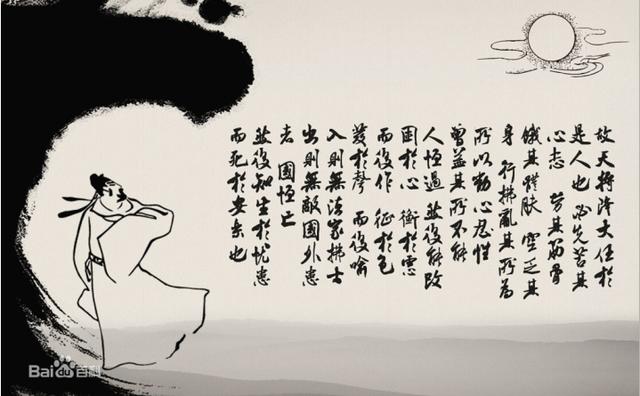 故天將降大任於
是人也 必先苦其
心志 勞其筋骨
餓其體膚 空乏其
身 行拂亂其所為
所以動心忍性
曾益其所不能
人恒過 然後能改
困於心 衡於慮
而後作 征於色
發於聲 而後喻
入則無法家拂士
出則無敵國外患
者 國恒亡
然後知生於憂患
而死於安樂也
Bai百科